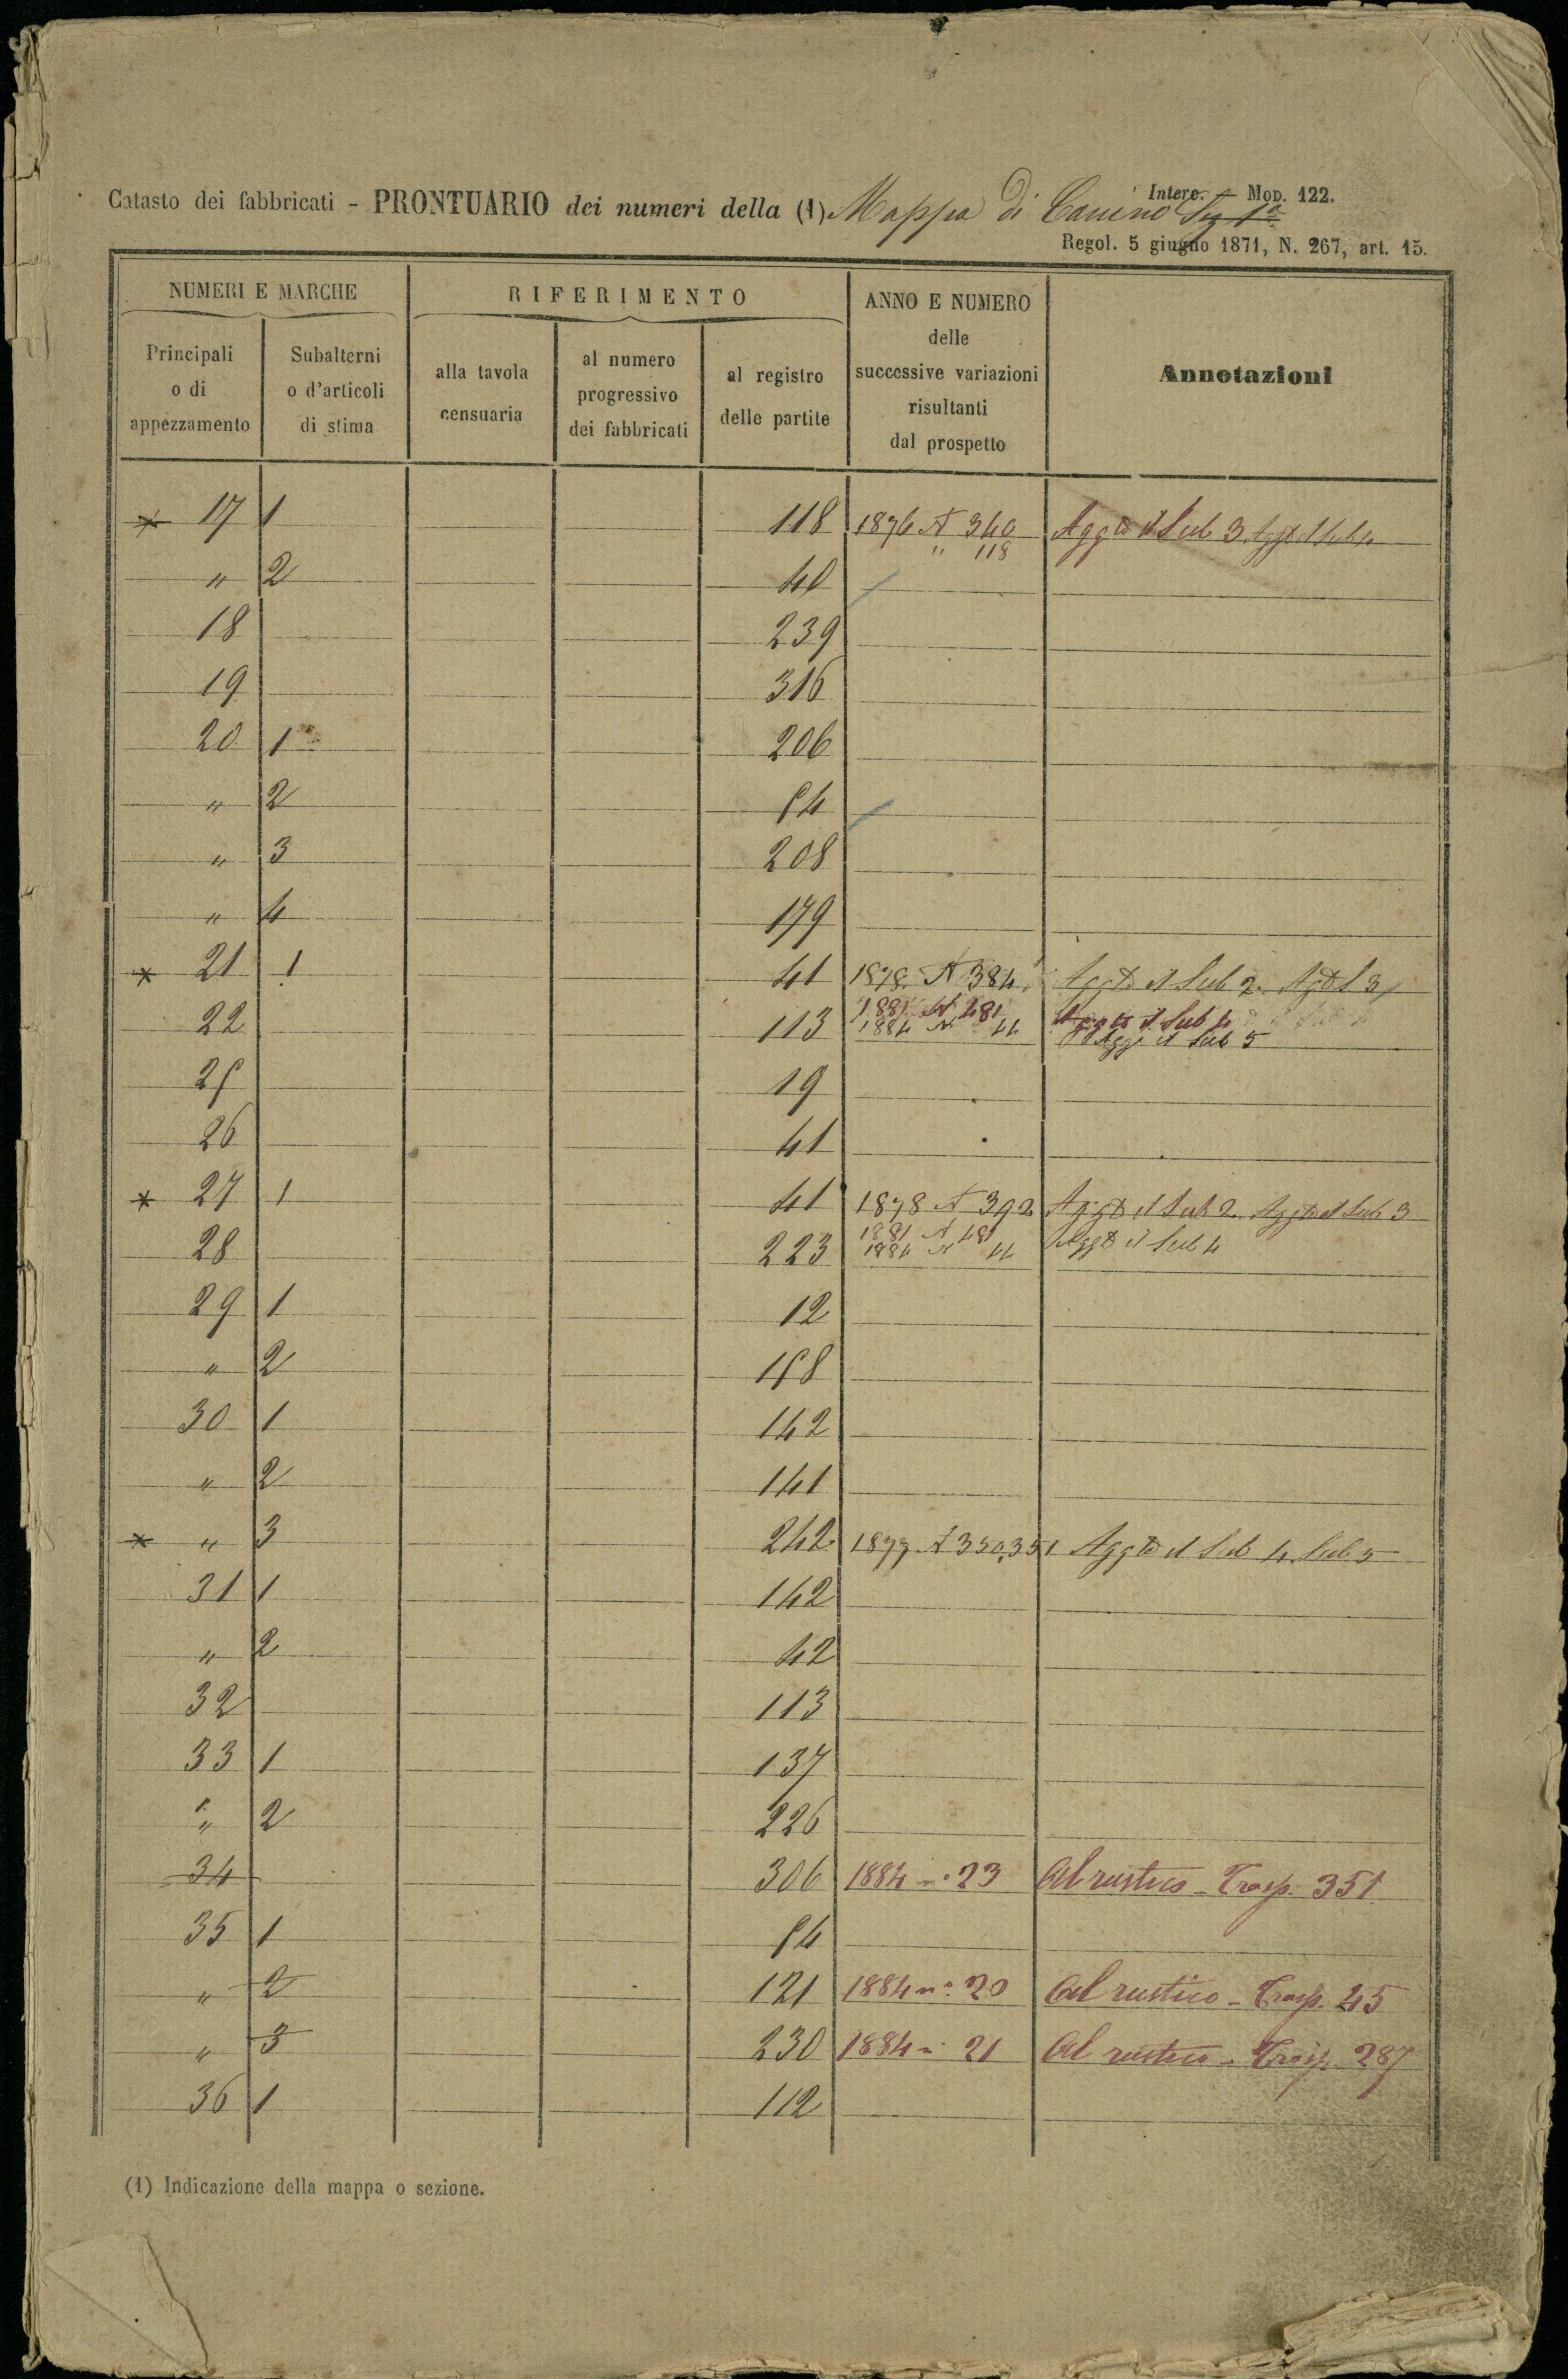 Catasto dei fabbricati - PRONTUARIO dei numeri della (1) Mappa di Canino Sez 1ª
Interc. - Mod. 122.
Regol. 5 giugno 1871, N. 267, art. 15.
NUMERI E MARCHE RIFERIMENTO ANNO E NUMERO delle successive variazioni risultanti dal prospetto Annotazioni
Principali o di appezzamento Subalterni o d'articoli di stima alla tavola censuaria al numero progressivo dei fabbricati al registro delle partite
* 17 1 118 1876 N 340 Aggto il Sub 3 Aggto il Sub 4
" 118
" 2 40
18 239
19 316
20 1 206
" 2 54
" 3 208
" 4 179
* 21 1 41 1878 N 384 Aggto il Sub 2 Agto S 3
1881 N 481 Aggto il Sub 4
22 113 1884 N 44 Aggt il Sub 5
25 19
26 41
* 27 1 41 1878 N 392 Aggto il Sub 2 Aggto il Sub 3
1881 N 481 Aggto il Sub 4
28 223 1884 N 44
29 1 12
" 2 158
30 1 142
" 2 141
* " 3 242 1877 N 350,351 Aggto il Sub 4. Sub 5
31 1 142
" 2 42
32 113
33 1 137
" 2 226
34 306 1884 n° 23 Al rustico - Trasp. 351
35 1 54
" 2 121 1884 n° 20 Al rustico - Trasp. 45
" 3 230 1884 n° 21 Al rustico - Trasp. 287
36 1 112
(1) Indicazione della mappa o sezione.